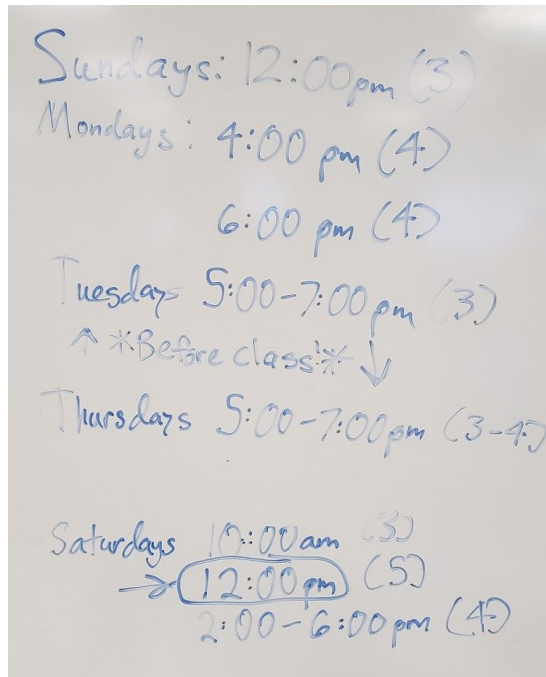 Sundays: 12:00pm (3)
Mondays: 4:00 pm (4)
6:00 pm (4)
Tuesdays 5:00-7:00pm (3)
↑ *Before class!* ↓
Thursdays 5:00-7:00pm (3-4)
Saturdays 10:00am (3)
→ 12:00pm (5)
2:00-6:00pm (4)